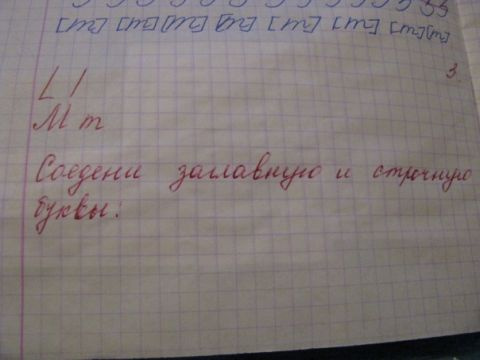 3.
L l
M m
Соедени заглавную и строчную
буквы: